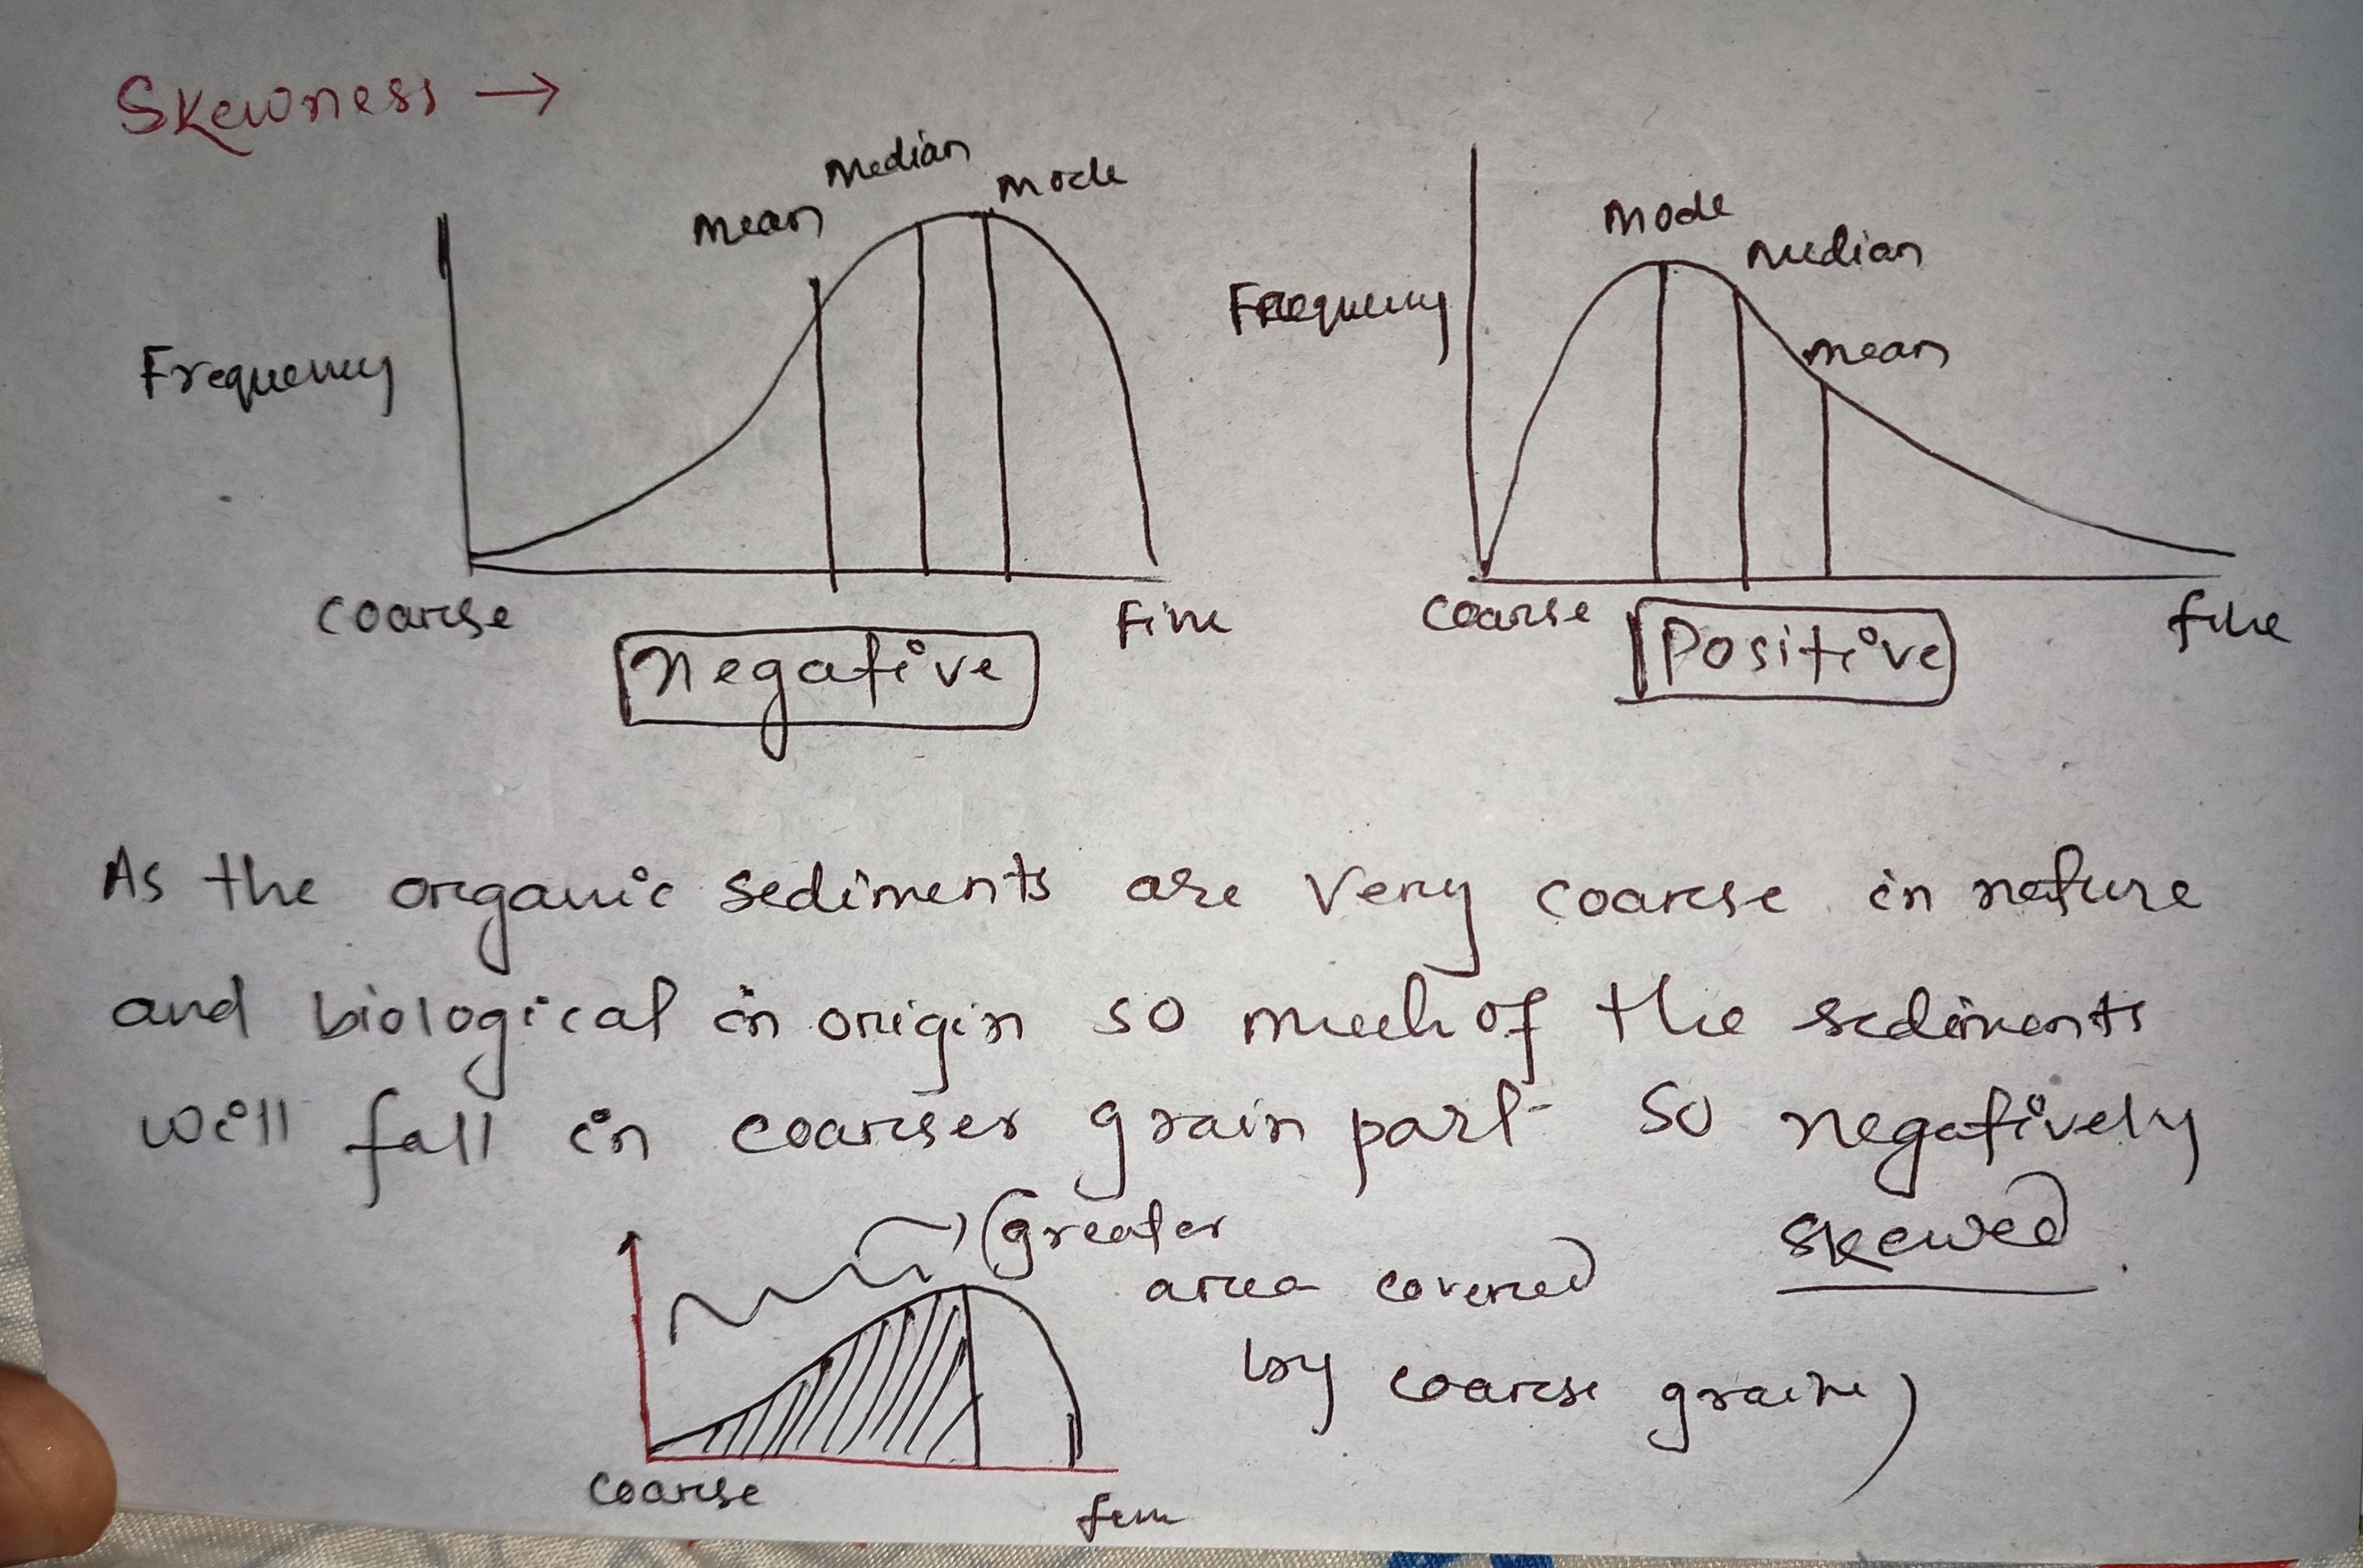 Skewness →
Median
mode
mean
Frequency
Coarse
Fine
Negative
Mode
Median
mean
Frequency
Coarse
fine
Positive
As the organic sediments are very coarse in nature
and biological in origin so much of the sediments
will fall in coarser grain part so negatively
skewed
(greater
area covered
by coarse grain)
Coarse
fine